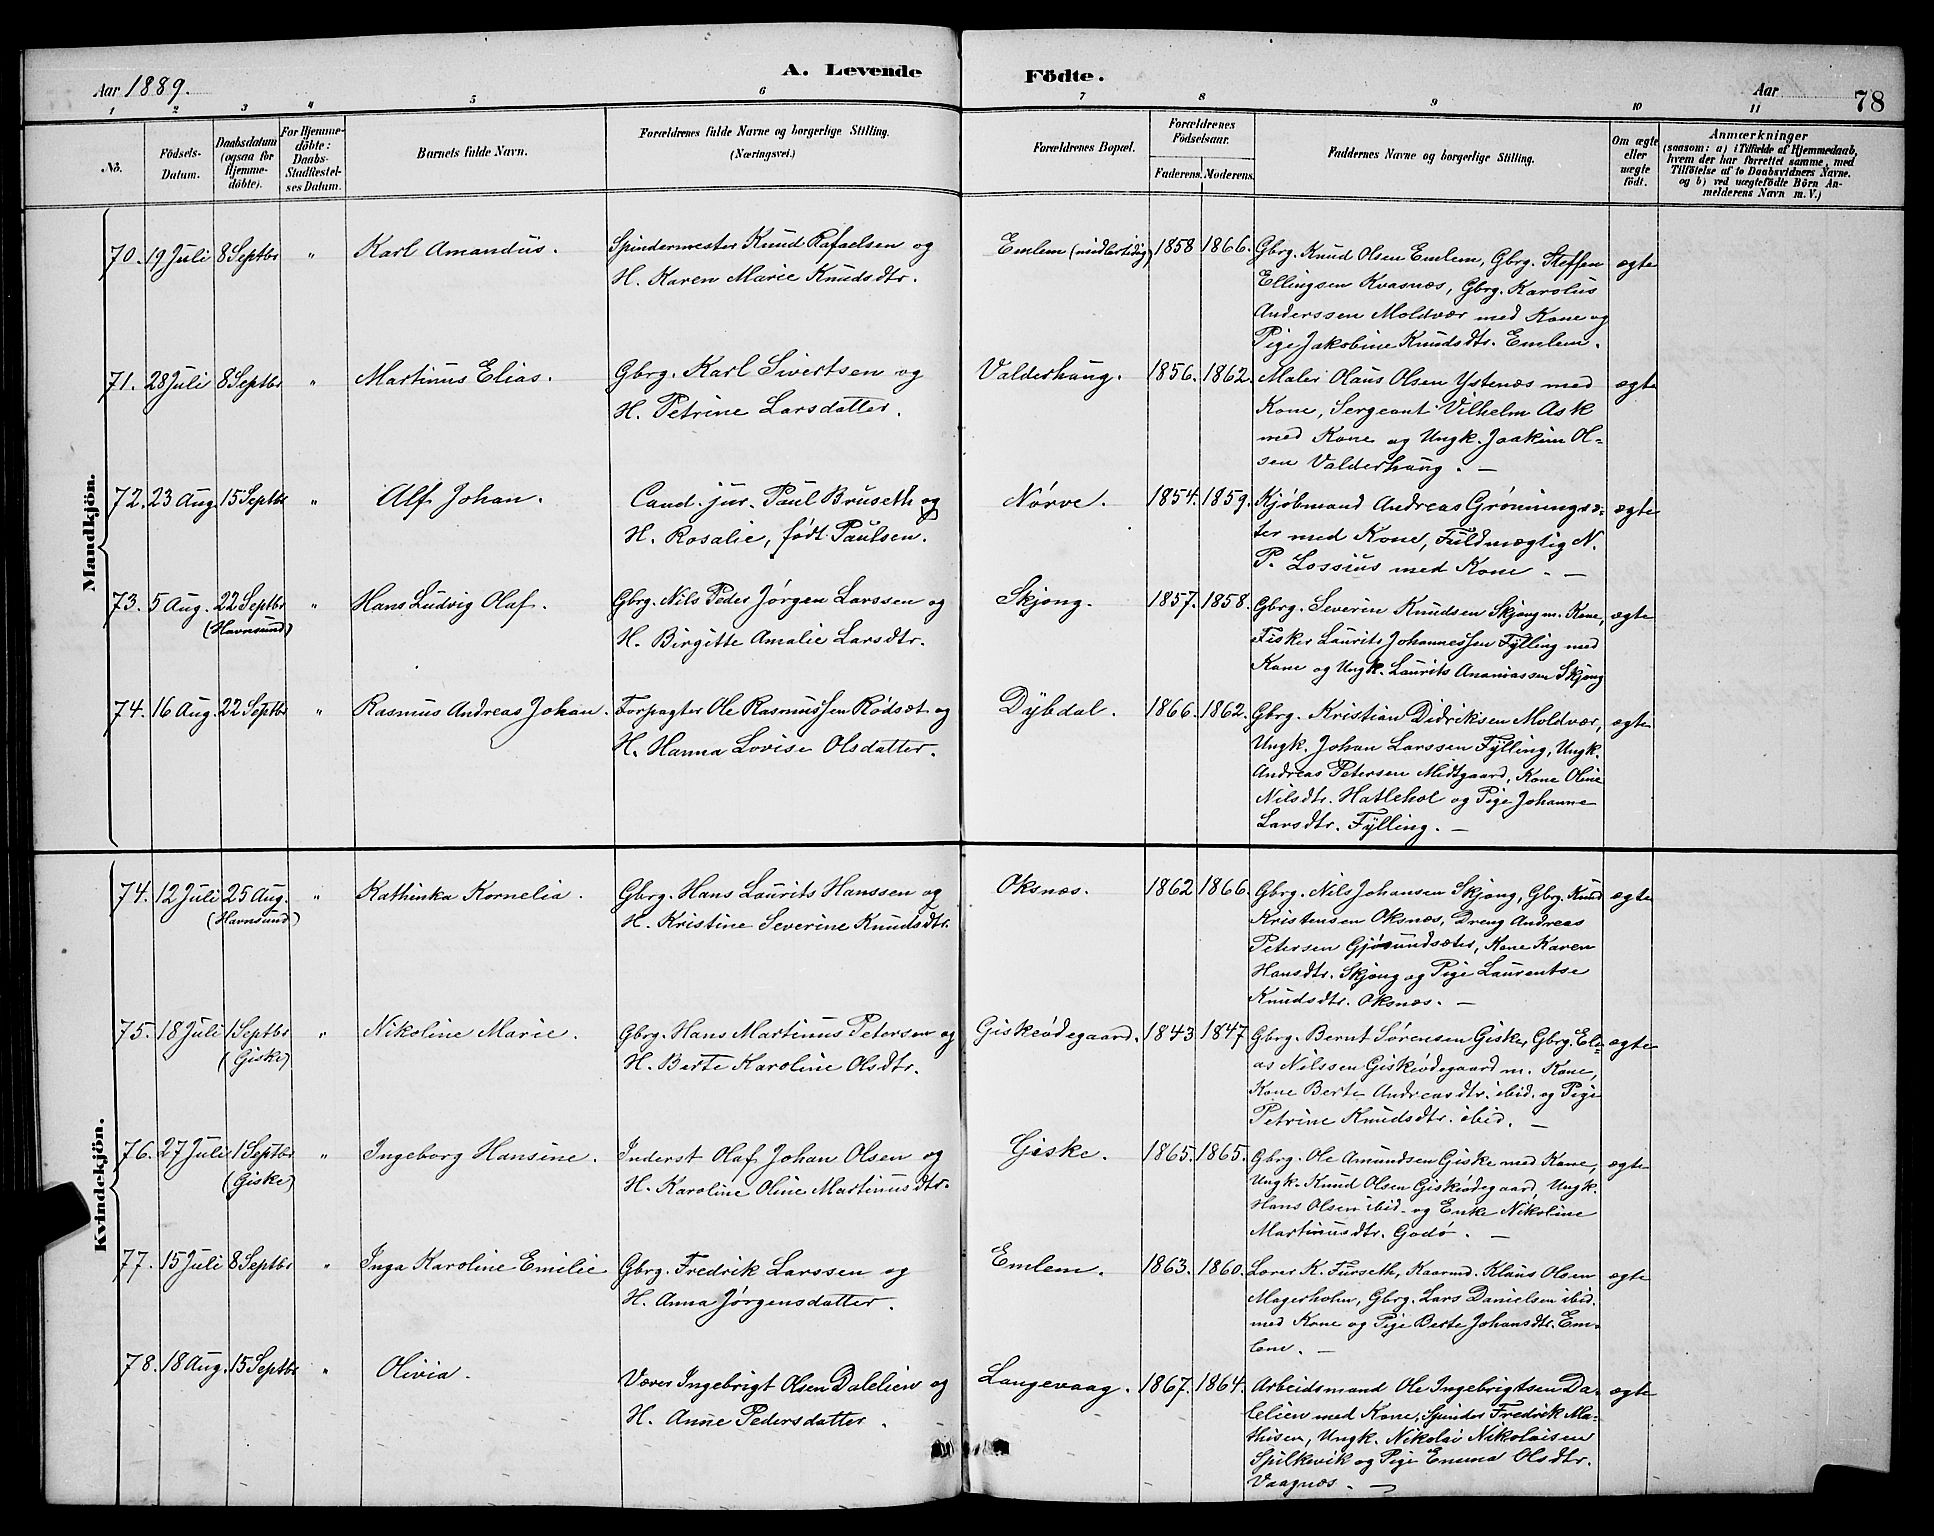 Aar 1889.
A. Levende Födte.
Aar
78
1 2 3 4 5 6 7 8 9 10 11
No.
Födsels-
Datum.
Daabsdatum
(ogsaa for
Hjemme-
döbte).
For Hjemme-
döbte:
Daabs-
Stadfæstel-
ses Datum.
Barnets fulde Navn.
Forældrenes fulde Navne og borgerlige Stilling.
(Næringsvei.)
Forældrenes Bopæl.
Forældrenes
Födselsaar.
Faderens. Moderens.
Faddernes Navne og borgerlige Stilling.
Om ægte
eller
uægte
födt.
Anmærkninger
(saasom: a) i Tilfælde af Hjemmedaab,
hvem der har forrettet samme, med
Tilföielse af to Daabsvidners Navne.
og b) ved uægtefödte Börn An-
melderens Navn m. V.)
Mandkjön.
70. 19 Juli 8 Septbr " Karl Amandus. Spindermester Knud Rafaelsen og
H. Karen Marie Knudsdtr.
Emlem (midlertidig) 1858 1866. Gbrg. Knud Olsen Emlem, Gbrg. Steffen ægte
Ellingsen Kvasnæs, Gbrg. Karolus
Anderssen Moldvær med Kone og
Pige Jakobine Knudsdtr. Emlem.
71. 28 Juli 8 Septbr " Martinus Elias. Gbrg. Karl Sivertsen og
H. Petrine Larsdatter.
Valderhaug. 1856. 1862. Maler Olaus Olsen Ystenæs med ægte
Kone, Sergeant Vilhelm Ask
med Kone og Ungk. Joakim Ol-
sen Valderhaug. —
72. 23 Aug. 15 Septbr " Alf Johan. Cand. jur. Paul Bruseth og
H. Rosalie, født Paulsen.
Nørve. 1854. 1859. Kjøbmand Andreas Grønningsæ- ægte
ter med Kone, Fuldmægtig N.
P. Lossius med Kone. —
73. 5 Aug. 22 Septbr " Hans Ludvig Olaf. Gbrg. Nils Peder Jørgen Larssen og
(Havnsund) H. Birgitte Amalie Larsdtr.
Skjong. 1857. 1858. Gbrg. Severin Knudsen Skjong m. Kone, ægte
Fisker Laurits Johannessen Fylling med
Kone og Ungk. Laurits Ananiassen Skjong
74. 16 Aug. 22 Septbr " Rasmus Andreas Johan. Forpagter Ole Rasmussen Rødsæt og
H. Hanna Lovise Olsdatter.
Dybdal. 1866. 1862. Gbrg. Kristian Didriksen Moldvær, ægte
Ungk. Johan Larssen Fylling, Ungk.
Andreas Petersen Midtgaard, Kone Oline
Nilsdtr. Hatlehol og Pige Johanne
Larsdtr. Fylling. —
Kvindekjön.
74. 12 Juli 25 Aug. " Kathinka Kornelia. Gbrg. Hans Laurits Hanssen og
(Havnsund) H. Kristine Severine Knudsdtr.
Oksnæs. 1862 1866. Gbrg. Nils Johansen Skjong, Gbrg. Knud ægte
Kristensen Oksnæs, Dreng Andreas
Petersen Gjøsundsæter, Kone Karen
Hansdtr. Skjong og Pige Laurentse
Knudsdtr. Oksnæs. —
75. 18 Juli 1 Septbr " Nikoline Marie. Gbrg. Hans Martinus Petersen og
(Giske) H. Berte Karoline Olsdtr.
Giskeødegaard. 1843 1847 Gbrg. Bernt Sørensen Giske, Gbrg. Eli- ægte
as Nilssen Giskeødegaard m. Kone,
Kone Berte Andreasdtr. ibid. og Pige
Petrine Knudsdtr. ibid. —
76. 27 Juli 1 Septbr " Ingeborg Hansine. Inderst Olaf Johan Olsen og
(Giske) H. Karoline Oline Martinusdtr.
Giske. 1865. 1865. Gbrg. Ole Amundsen Giske med Kone, ægte
Ungk. Knud Olsen Giskeødegaard, Ungk.
Hans Olsen ibid. og Enke Nikoline
Martinusdtr. Godø. —
77. 15 Juli 8 Septbr " Inga Karoline Emilie Gbrg. Fredrik Larssen og
H. Anna Jørgensdatter.
Emlem. 1863. 1860. Lærer K. Furseth, Kaarmd. Klaus Olsen ægte
Magerholm, Gbrg. Lars Danielsen ibid.
med Kone og Pige Berte Johansdtr. Em-
lem. —
78. 18 Aug. 15 Septbr " Olivia. Væver Ingebrigt Olsen Dalelien og
H. Anne Pedersdatter.
Langevaag. 1867. 1864. Arbeidsmand Ole Ingebrigtsen Da- ægte
lelien med Kone, Spinder Fredrik Ma-
thisen, Ungk. Nikolai Nikolaisen
Spilkevik og Pige Emma Olsdtr.
Vaagnæs. —